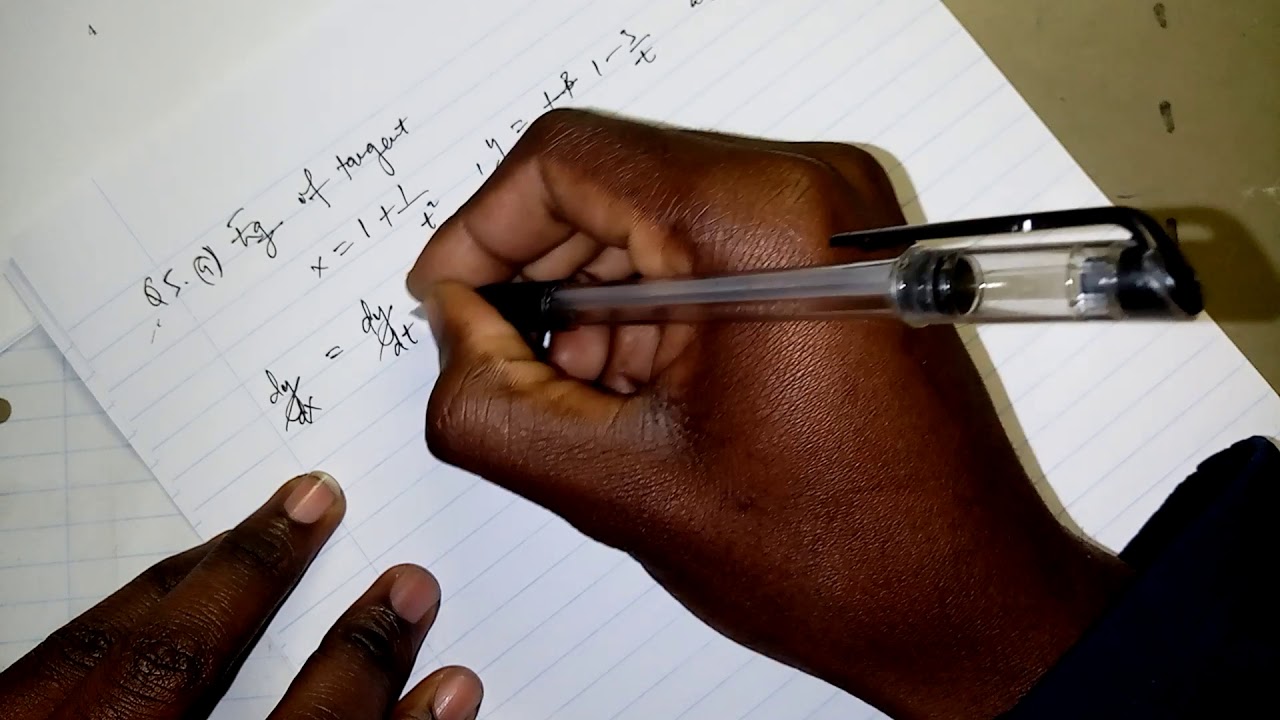 Q5. (a) Eq of tangent
x = 1 + 1/t² , y = 1 - 3/t
dy/dx = dy/dt